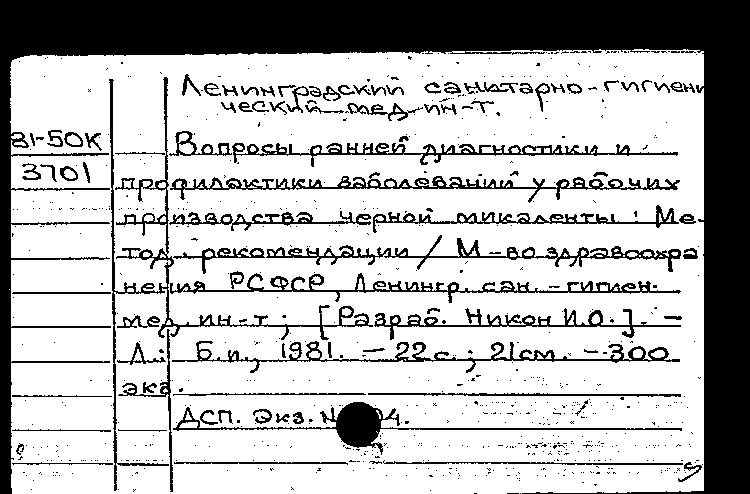 Ленинградский санитарно-гигиени
ческий мед. ин-т.
81-50К
Вопросы ранней диагностики и
3701
профилактики заболеваний у рабочих
производства черной микаленты: Ме-
тод. рекомендации / М-во здравоохра
нения РСФСР, Ленингр. сан.-гигиен.
мед. ин-т; [Разраб. Никон И.О.]. -
Л.: Б.и., 1981. - 22 с.; 21см. - 300
экз.
ДСП. Экз. N 04.